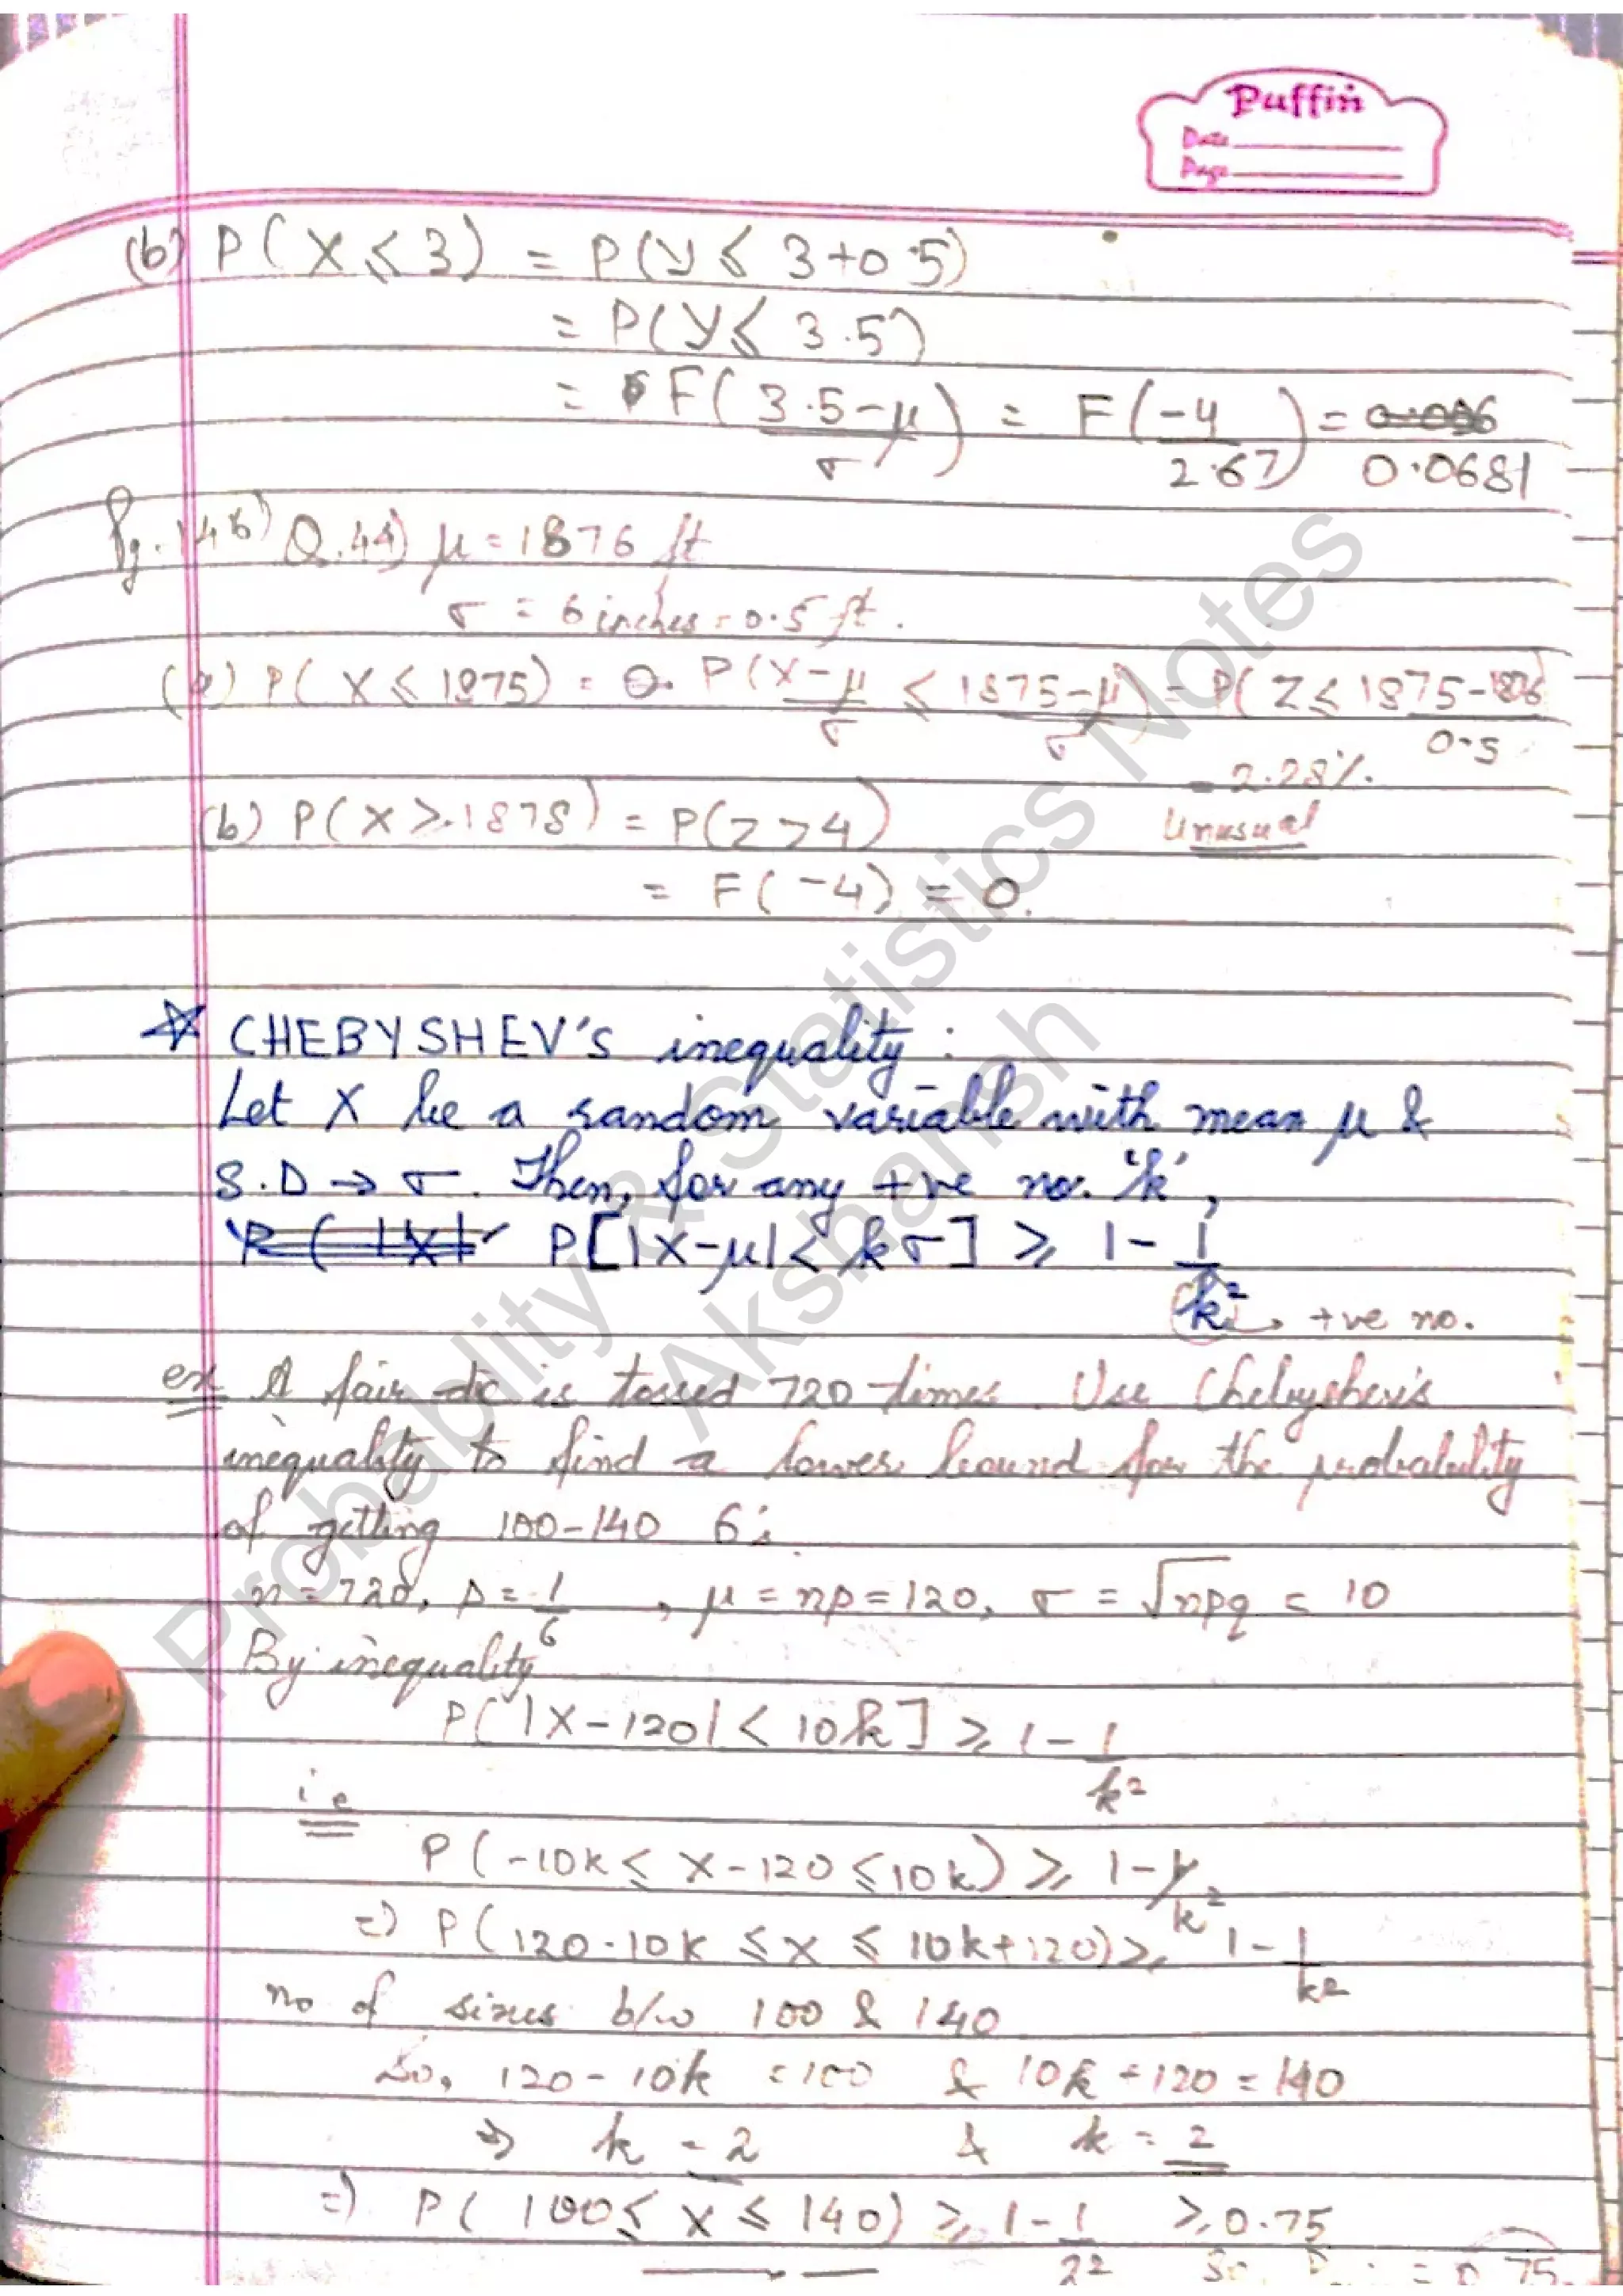 Puffin
Date
Page
(b) P(X ≤ 3) = P(Y ≤ 3+0.5)
= P(Y ≤ 3.5)
= F(3.5-μ/σ) = F(-4/2.67) = 0.0681
Pg. 146) Q.44) μ = 1876 ft
σ = 6 inches = 0.5 ft.
(a) P(X ≤ 1875) = P(X-μ/σ ≤ 1875-μ/σ) = P(Z ≤ 1875-1876/0.5
= 2.28%.
Unusual
(b) P(X ≥ 1878) = P(Z > 4)
= F(-4) = 0.
☆ CHEBYSHEV's inequality :
Let X be a random variable with mean μ &
S.D → σ. Then, for any +ve no. 'k',
P[|X-μ| < kσ] ≥ 1 - 1/k² → +ve no.
ex. A fair die is tossed 720 times. Use Chebyshev's
inequality to find a lower bound for the probability
of getting 100-140 6's
n = 720, p = 1/6, μ = np = 120, σ = √npq = 10
By inequality
P[|X-120| < 10k] ≥ 1 - 1/k²
i.e
P(-10k ≤ X-120 ≤ 10k) ≥ 1 - 1/k²
=) P(120-10k ≤ X ≤ 10k+120) ≥ 1 - 1/k²
no of sixes b/w 100 & 140
So, 120-10k = 100 & 10k+120 = 140
⇒ k = 2 & k = 2
=) P(100 ≤ X ≤ 140) ≥ 1 - 1/2² ≥ 0.75
= 0.75
Probability & Statistics Notes
Akshansh